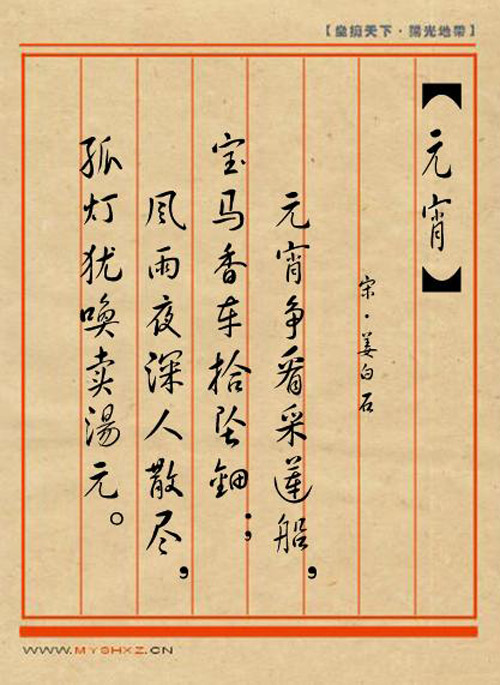 【墨摘天下·陽光地帶】
【元宵】
宋·姜白石
元宵争看采蓮船，
宝马香车拾坠鈿；
风雨夜深人散尽，
孤灯犹唤卖湯元。
WWW.MYSHXZ.CN